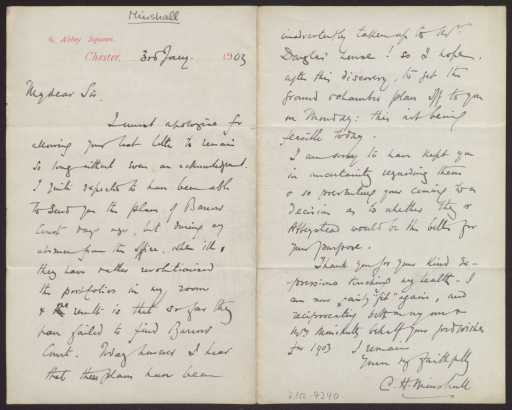 Minshull
6, Abbey Square,
Chester, 3rd Jany. 1903
My dear Sir,
I must apologise for
allowing your last letter to remain
so long without even an acknowledgment.
I quite expected to have been able
to send you the plans of Barrow
Court days ago, but during my
absence from the office, when ill,
they have rather revolutionised
the portfolios in my room
& the result is that so far they
have failed to find Barrow
Court. Today however I hear
that these plans have been
inadvertently taken up to Mr.
Douglas' house! So I hope,
after this discovery, to get the
ground & chamber plan off to you
on Monday: this not being
feasible today.
I am sorry to have kept you
in uncertainty regarding them
& so preventing your coming to a
decision as to whether they or
Abbeystead would be the better for
your purpose.
Thank you for your kind ex-
pressions touching my health. I
am now again, and
reciprocating both on my own &
Mrs Minshull's behalf your good wishes
for 1903 I remain
Yours very faithfully
C. H. Minshull